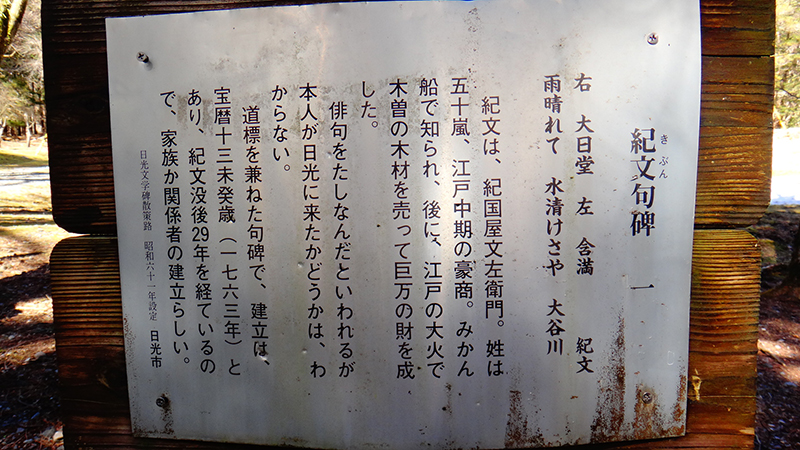 紀文句碑 一
きぶん
右 大日堂 左 含満 紀文
雨晴れて 水清けさや 大谷川
紀文は、紀国屋文左衛門。姓は
五十嵐、江戸中期の豪商。みかん
船で知られ、後に、江戸の大火で
木曽の木材を売って巨万の財を成
した。
俳句をたしなんだといわれるが
本人が日光に来たかどうかは、わ
からない。
道標を兼ねた句碑で、建立は、
宝暦十三未癸歳（一七六三年）と
あり、紀文没後29年を経ているの
で、家族か関係者の建立らしい。
日光文学碑散策路 昭和六十一年設定 日光市